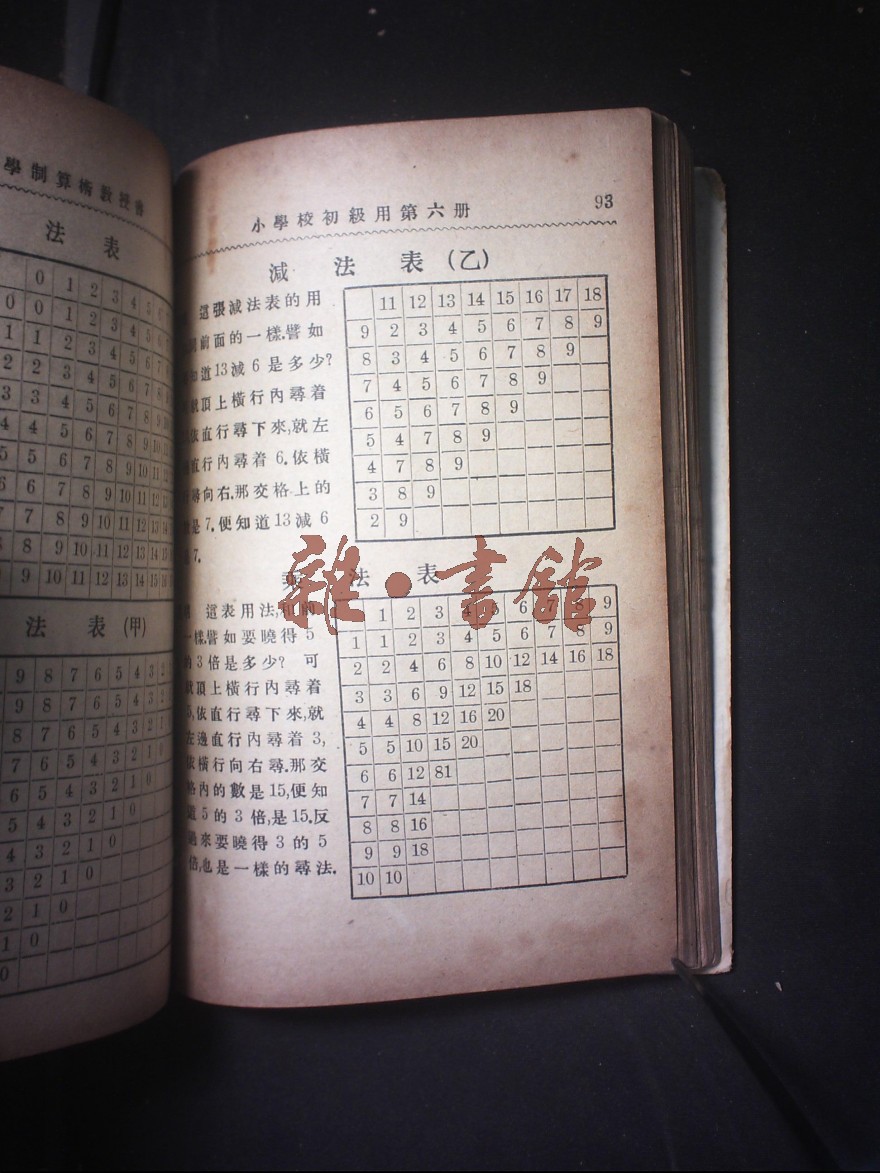 學制算術教授書
法 表
0 1 2 3 4 5
0 0 1 2 3 4 5
1 1 2 3 4 5 6 7
2 2 3 4 5 6 7 8
3 3 4 5 6 7 8 9
4 4 5 6 7 8 9 10
5 5 6 7 8 9 10 11
6 6 7 8 9 10 11 12
7 7 8 9 10 11 12 13
8 8 9 10 11 12 13 14
9 9 10 11 12 13 14 15
法 表 (甲)
9 8 7 6 5 4 3 2
9 8 7 6 5 4 3 2
8 7 6 5 4 3 2
7 6 5 4 3 2 1 0
6 5 4 3 2 1 0
5 4 3 2 1 0
4 3 2 1 0
3 2 1 0
2 1 0
1 0
0
小學校初級用第六册 93
減 法 表 (乙)
這張減法表的用
前面的一樣.譬如
知道13減6是多少?
就頂上橫行內尋着
依直行尋下來,就左
直行內尋着6.依橫
尋向右.那交格上的
是7.便知道13減6
7.
11 12 13 14 15 16 17 18
9 2 3 4 5 6 7 8 9
8 3 4 5 6 7 8 9
7 4 5 6 7 8 9
6 5 6 7 8 9
5 4 7 8 9
4 7 8 9
3 8 9
2 9
雜·書館
乘 法 表
這表用法,和前
一樣.譬如要曉得5
的3倍是多少? 可
就頂上橫行內尋着
5,依直行尋下來,就
左邊直行內尋着3,
依橫行向右尋.那交
格內的數是15,便知
道5的3倍,是15.反
過來要曉得3的5
倍,也是一樣的尋法.
1 2 3 4 5 6 7 8 9
1 1 2 3 4 5 6 7 8 9
2 2 4 6 8 10 12 14 16 18
3 3 6 9 12 15 18
4 4 8 12 16 20
5 5 10 15 20
6 6 12 81
7 7 14
8 8 16
9 9 18
10 10